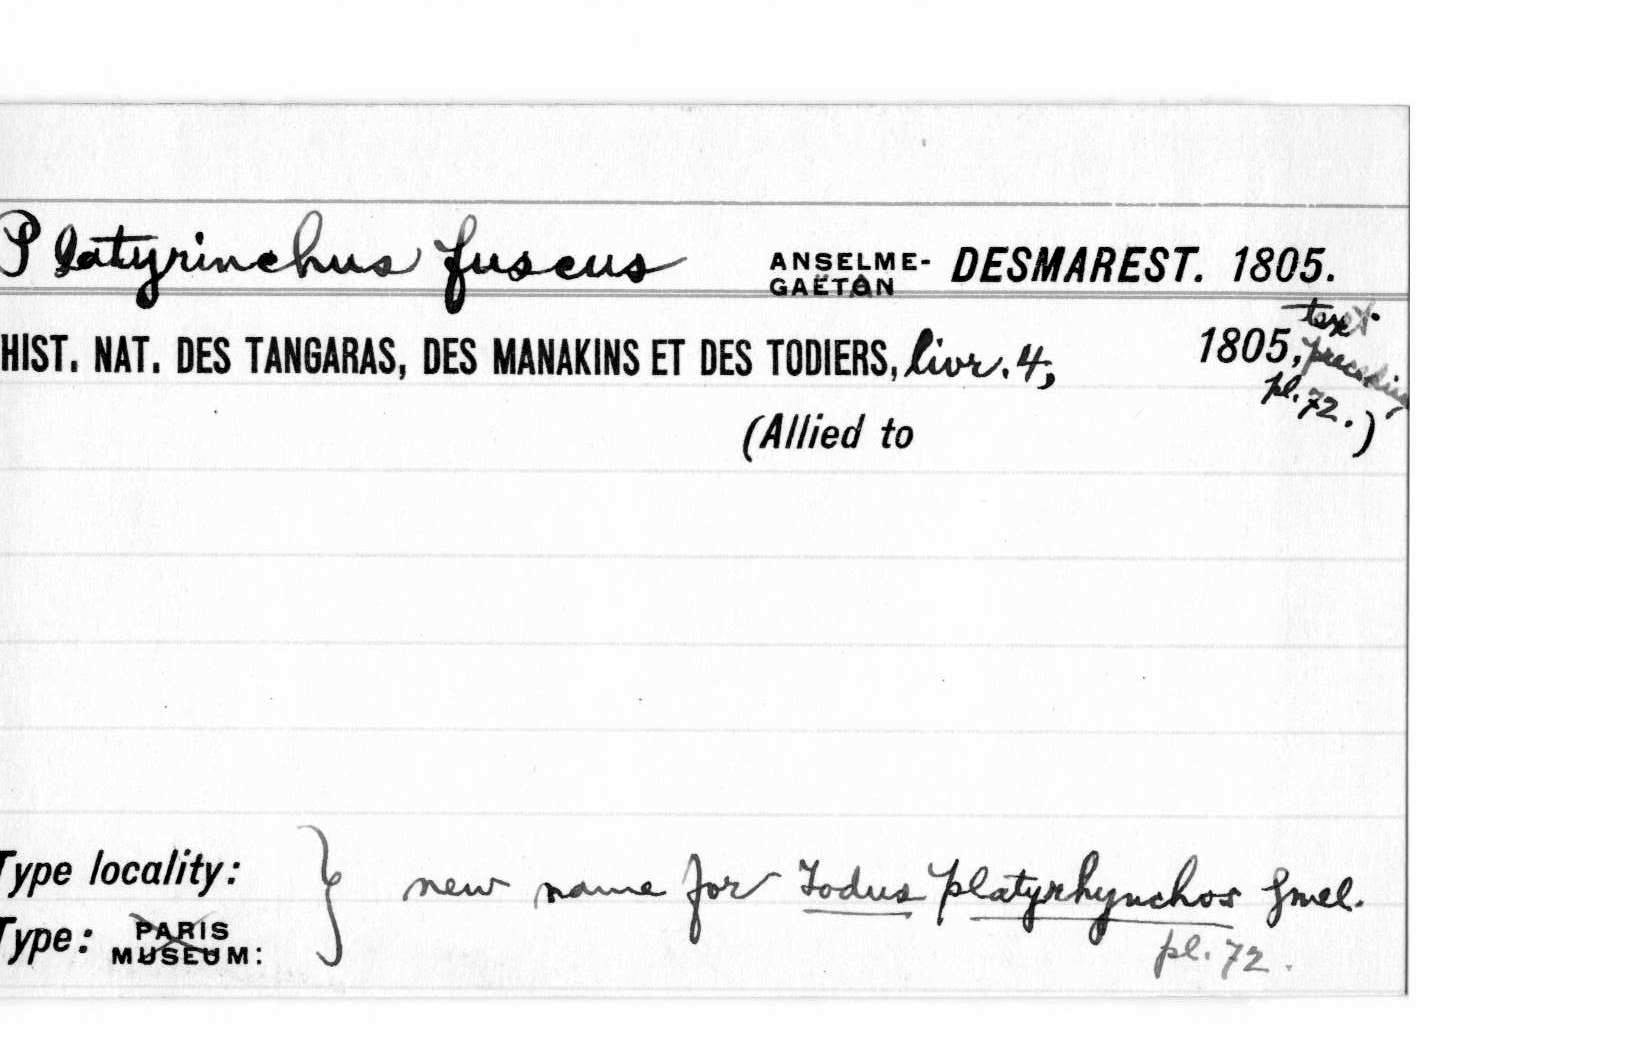 Platyrinchus fuscus ANSELME-GAËTAN DESMAREST. 1805.
HIST. NAT. DES TANGARAS, DES MANAKINS ET DES TODIERS, livr. 4, 1805, text preceding pl. 72.)
(Allied to
Type locality: } new name for Todus platyrhynchos Gmel.
Type: PARIS MUSEUM: pl. 72.